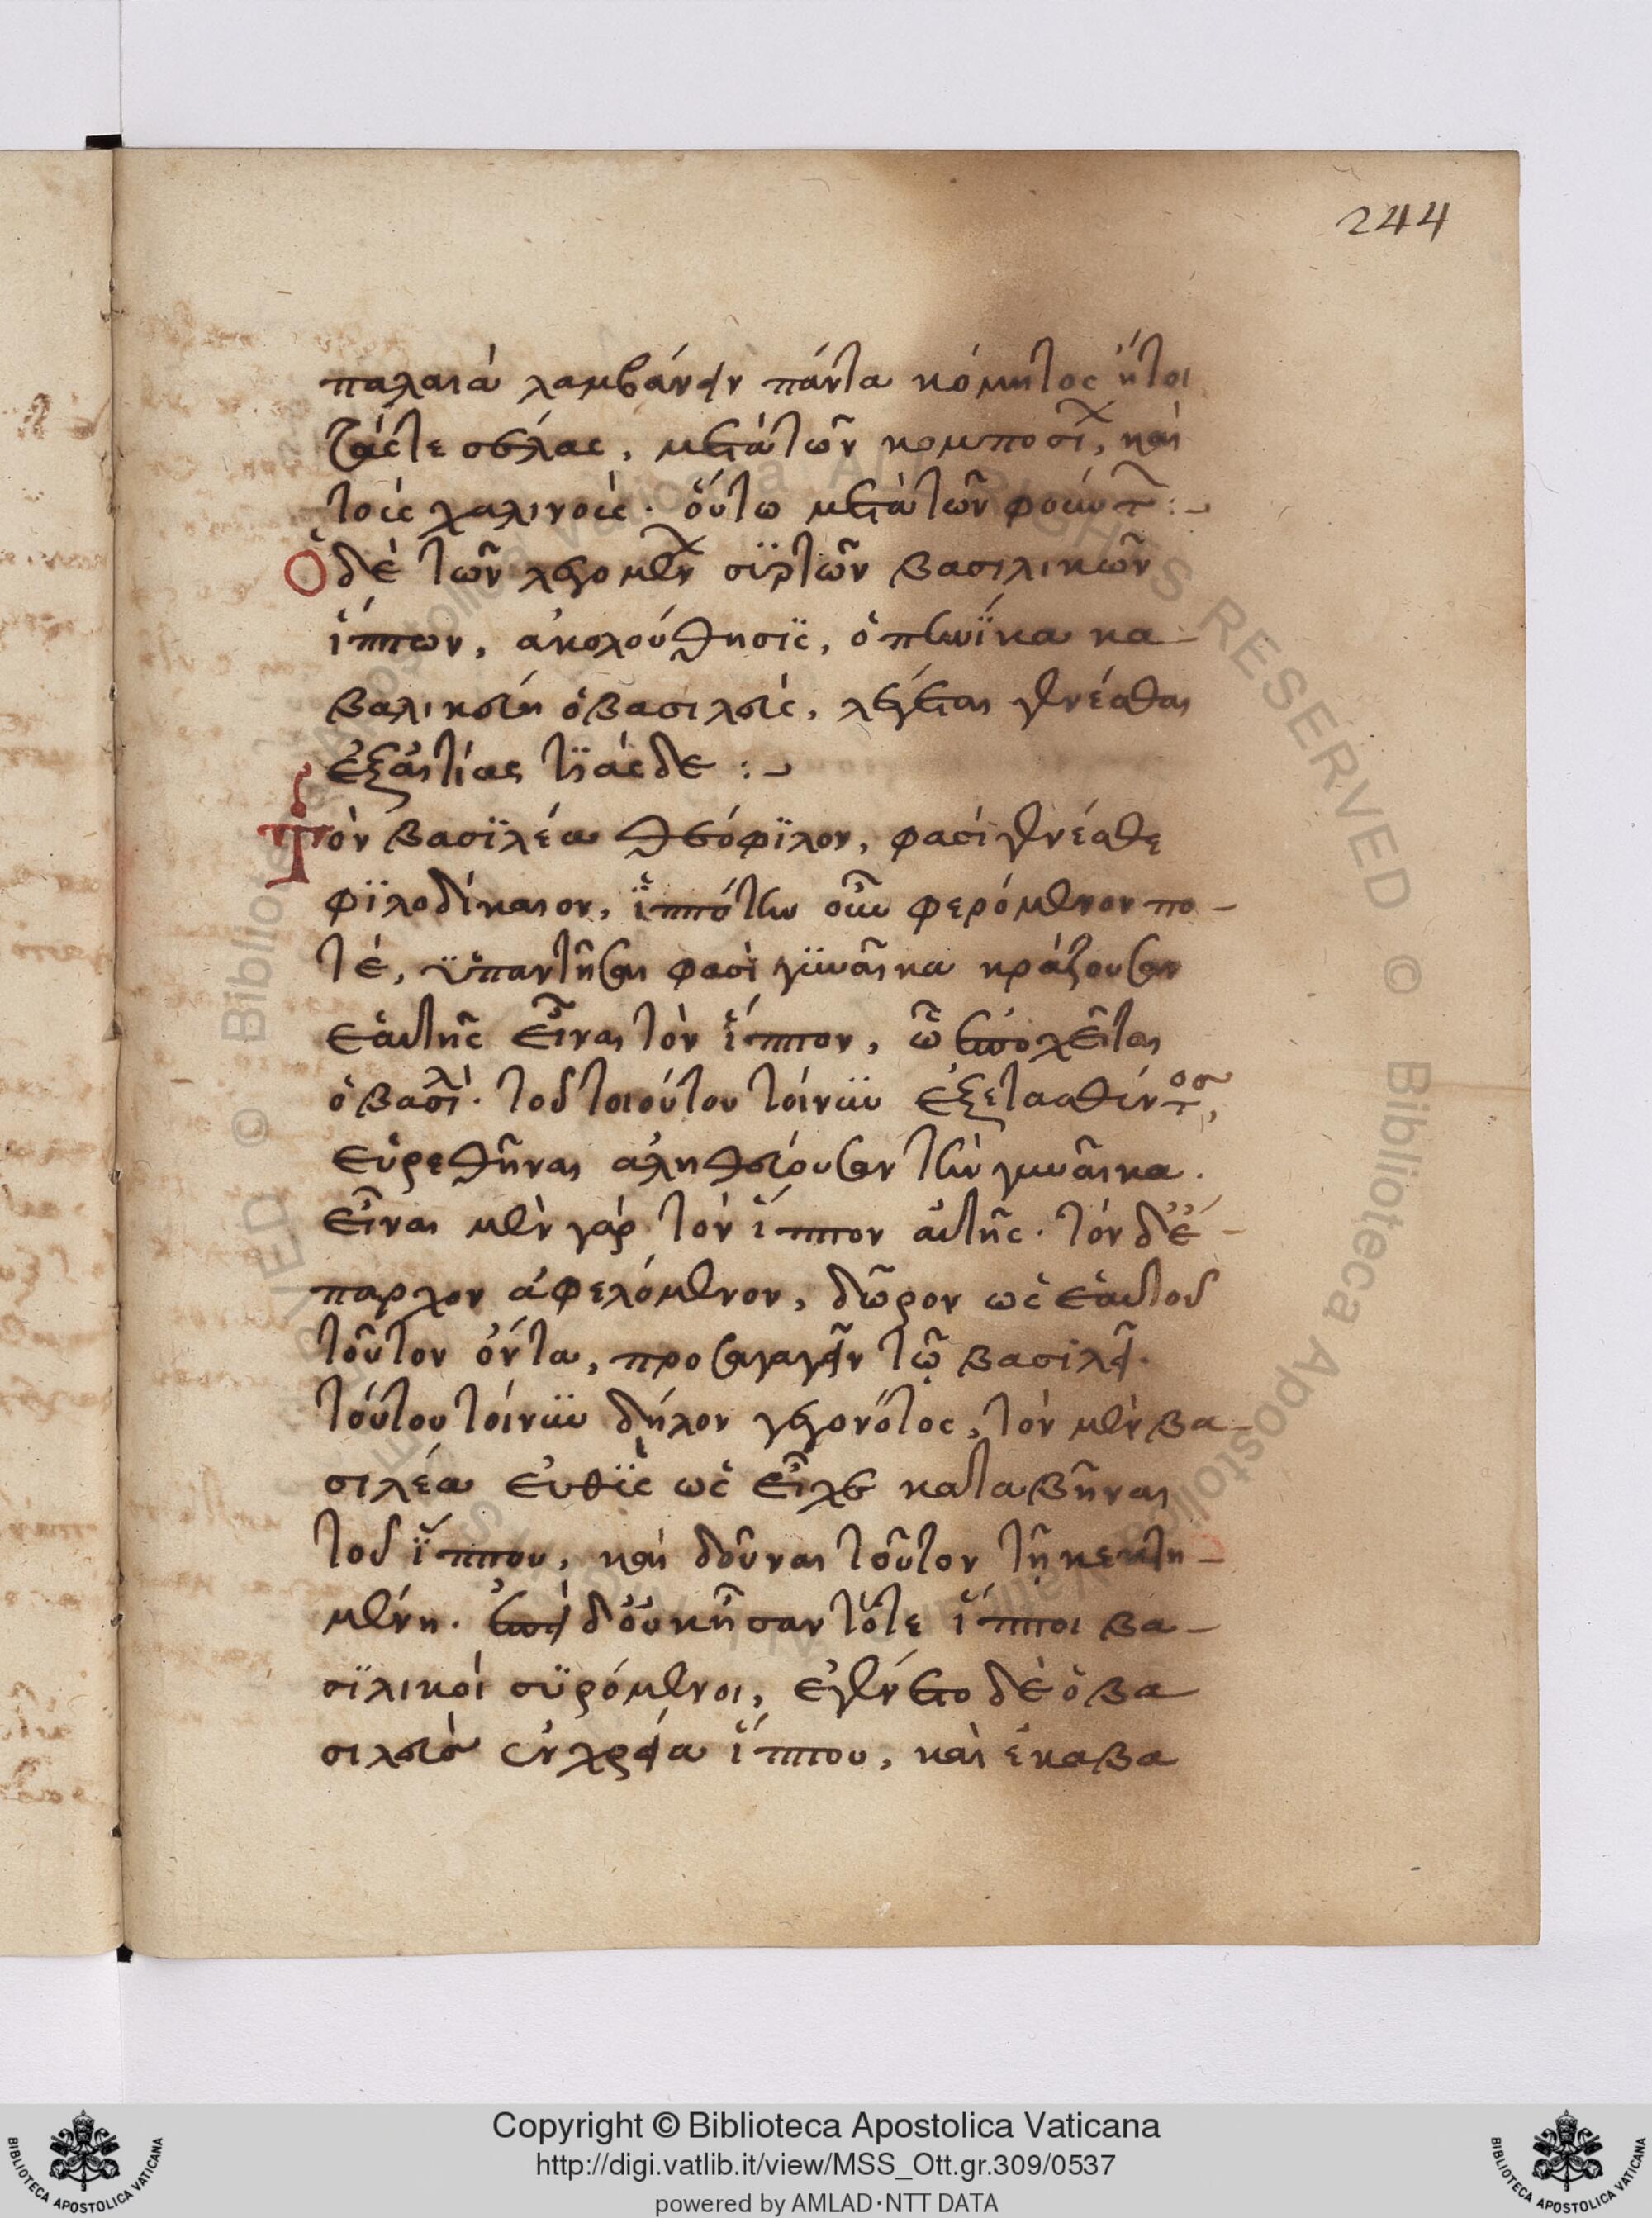 244
παλαιὰ λαμβάνειν πάντα κόμητος ἤτοι
τάς τε σέλας, μετὰ τῶν κομποσίχ, καὶ
τοῖς χαλινοῖς. οὕτω μετὰ τῶν φοιύντ :-
Ὁ δὲ τῶν λεγομένχ σϊρτῶν βασιλικῶν
ἵππων, ἀκολούθησϊς, ὁπηνίκα κα
βαλικεύη ὁ βασιλεὺς, λέγεται γενέσθαι
ἐξ αἰτίας τϊᾶσδε :-
Τὸν βασϊλέα θεόφϊλον, φασὶ γενέσθαι
φϊλοδίκαιον, ἱππότην οὖν φερόμενον πο-
τὲ, ὑπαντῆσαι φασὶ γϋναῖκα κράζουσαν
ἑαυτῆς εἶναι τὸν ἵππον, ᾧ ἐποχεῖται
ὁ βασιλ. τοῦ τοιούτου τοίνϋν ἐξετασθέντος,
εὑρεθῆναι ἀληθεύουσαν τὴν γυναῖκα.
εἶναι μὲν γὰρ τὸν ἵππον αὐτῆς. τὸν δ' ἔ-
παρχον ἀφελόμενον, δῶρον ὡς ἑαυτοῦ
τοῦτον ὄντα, προσαγαγεῖν τῷ βασιλεῖ.
τούτου τοίνϋν δήλον γεγονότος, τὸν μὲν βα-
σιλέα εὐθϋς ὡς εἶχε καταβῆναι
τοῦ ἵππου, καὶ δοῦναι τοῦτον τῇ κεκτη-
μένη. ἐπεὶ δ' οὐκ ἦσαν τότε ἵπποι βα-
σϊλικοὶ σϋρόμενοι, ἐγένετο δὲ ὁ βα
σιλεὺς ἐν χρεία ἵππου, καὶ ἐκαβα
Copyright © Biblioteca Apostolica Vaticana
http://digi.vatlib.it/view/MSS_Ott.gr.309/0537
powered by AMLAD·NTT DATA